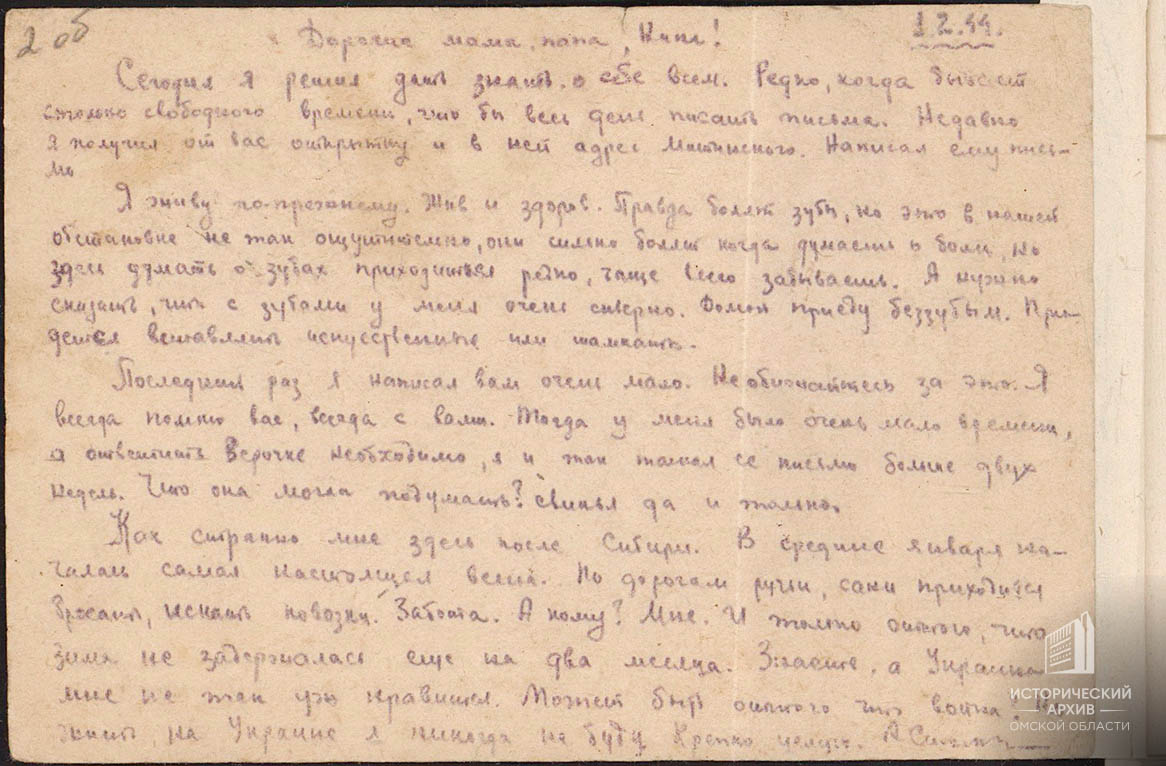 2 об
1.2.44.
Дорогие мама, папа, Нина!
Сегодня я решил дать знать о себе всем. Редко, когда бывает
столько свободного времени, что бы весь день писать письма. Недавно
я получил от вас открытку и в ней адрес. Написал ему пись-
мо
Я живу по-прежнему. Жив и здоров. Правда болят зубы, но это в нашей
обстановке не так ощутительно, они сильно болят когда думаешь о боли, но
здесь думать о зубах приходиться редко, чаще всего забываешь. А нужно
сказать, что с зубами у меня очень скверно. Домой приеду беззубым. При-
дется вставлять искуственные или шамкать.
Последний раз я написал вам очень мало. Не обижайтесь за это. Я
всегда помню вас, всегда с вами. Тогда у меня было очень мало времени,
а ответить Верочке необходимо, я и так таскал ее письмо больше двух
недель. Что она могла подумать? Свинья да и только.
Как странно мне здесь после Сибири. В средине января на-
чалась самая настоящая весна. По дорогам ручьи, сани приходится
бросать, искать повозки. Забота. А кому? Мне. И только оттого, что
зима не задержалась еще на два месяца. Знаете, а Украина
мне не так уж нравится. Может быть оттого что война. Но
жить на Украине я никогда не буду Крепко целую.
ИСТОРИЧЕСКИЙ
АРХИВ
ОМСКОЙ ОБЛАСТИ